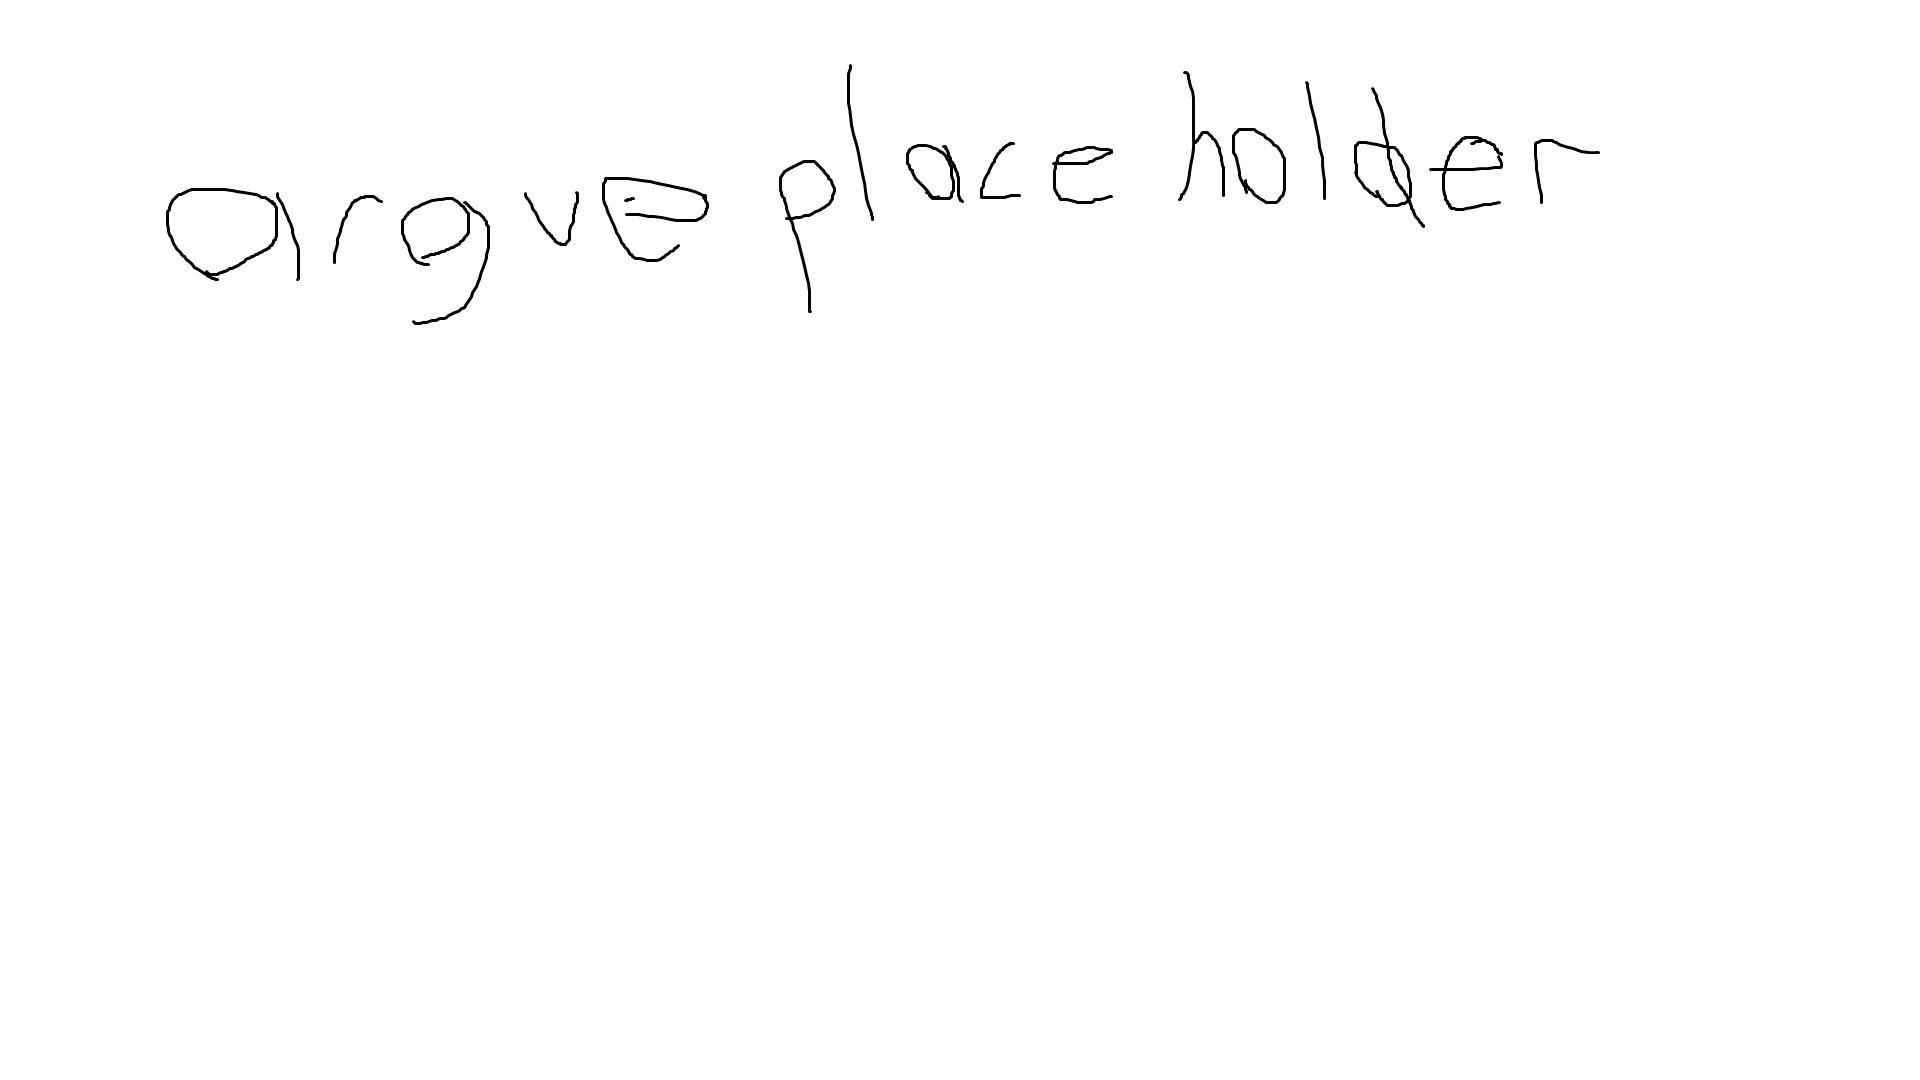 argue place holder